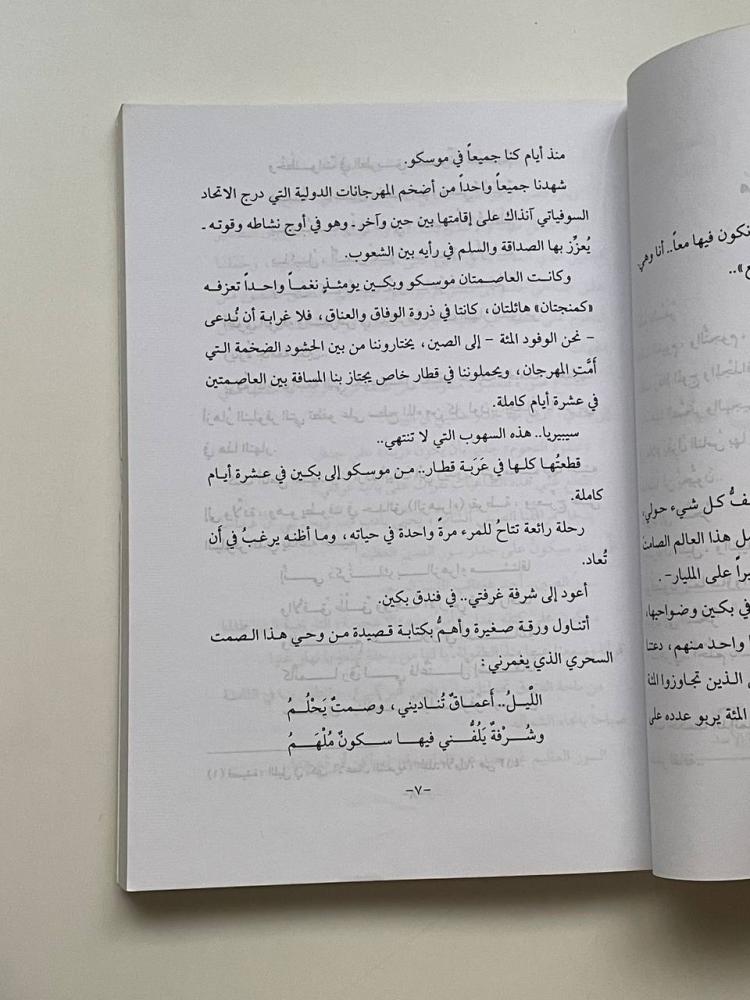 نكون فيها معاً.. أنا وهي
ـفُّ كل شيء حولي،
ـل هذا العالم الصامت
ـراً على المليار-.
في بكين وضواحيها،
واحد منهم، دعتنا
الذين تجاوزوا المئة
المئة يربو عدده على
منذ أيام كنا جميعاً في موسكو.
شهدنا جميعاً واحداً من أضخم المهرجانات الدولية التي درج الاتحاد
السوفياتي آنذاك على إقامتها بين حين وآخر ـ وهو في أوج نشاطه وقوته ـ
يُعزِّز بها الصداقة والسلم في رأيه بين الشعوب.
وكانت العاصمتان موسكو وبكين يومئذٍ نغماً واحداً تعزفه
«كمنجتان» هائلتان، كانتا في ذروة الوفاق والعناق، فلا غرابة أن نُدعى
– نحن الوفود المئة – إلى الصين، يختاروننا من بين الحشود الضخمة التي
أَمَّتِ المهرجان، ويحملوننا في قطار خاص يجتاز بنا المسافة بين العاصمتين
في عشرة أيام كاملة.
سيبيريا.. هذه السهوب التي لا تنتهي..
قطعتُها كلها في عَرَبَة قطار.. من موسكو إلى بكين في عشرة أيام
كاملة.
رحلة رائعة تتاحُ للمرء مرةً واحدة في حياته، وما أظنه يرغبُ في أَن
تُعاد.
أعود إلى شرفة غرفتي.. في فندق بكين.
أتناول ورقة صغيرة وأهمُّ بكتابة قصيدة من وحي هذا الصمت
السحري الذي يغمرني:
اللَّيلُ.. أَعماقٌ تُناديني، وصمتٌ يَحْلُمُ
وشُرْفةٌ يَلُفُّني فيها سكونٌ مُلْهَمُ
-٧-